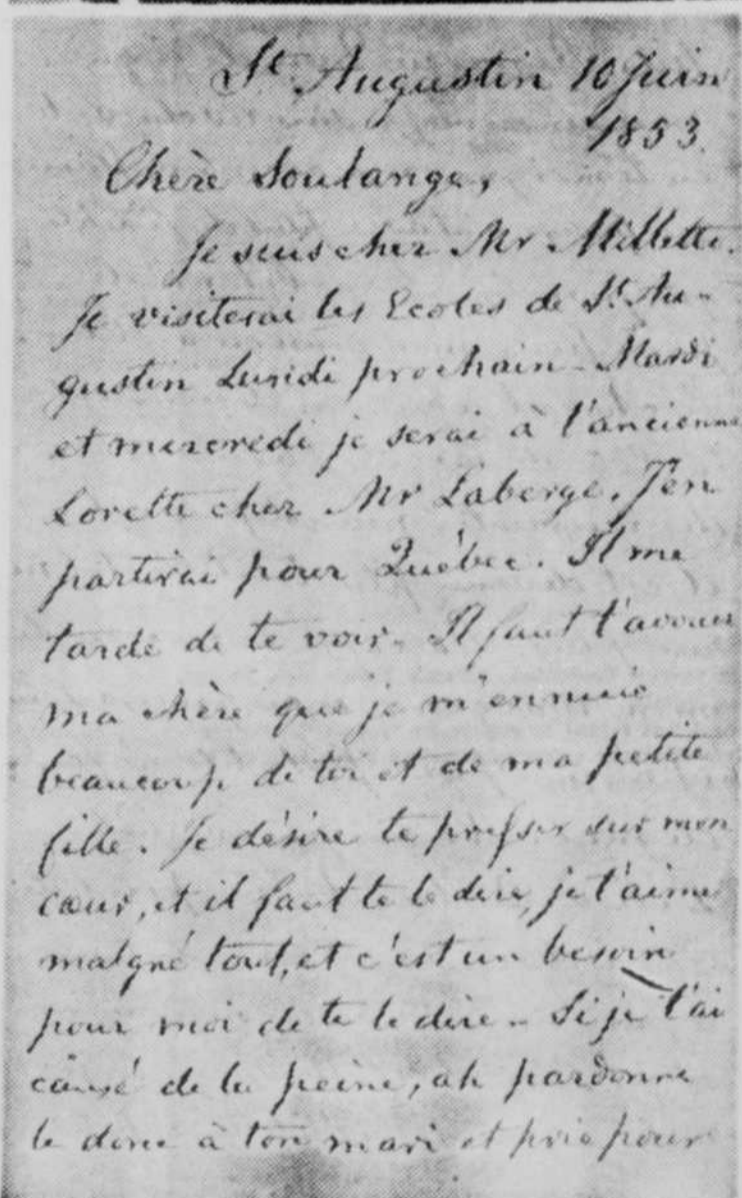 St. Augustin 10 Juin
1853.
Chère Soulange,
Je suis chez Mr Millette.
Je visiterai les Ecoles de St. Au-
gustin Lundi prochain - Mardi
et mercredi je serai à l'ancienne
Lorette chez Mr Laberge. J'en
partirai pour Québec. Il me
tarde de te voir. Il faut t'avouer
ma chère que je m'ennuie
beaucoup de toi et de ma petite
fille. Je désire te presser sur mon
cœur, et il faut te le dire, je t'aime
malgré tout, et c'est un besoin
pour moi de te le dire. Si je t'ai
causé de la peine, ah pardonne
le donc à ton mari et prie pour